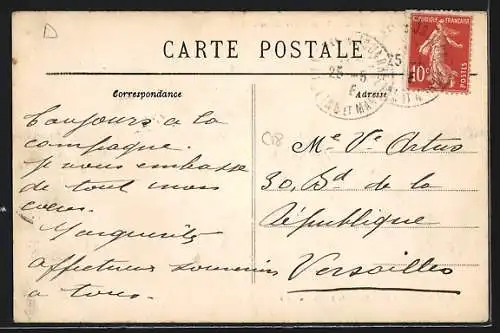 D
CARTE POSTALE
RÉPUBLIQUE FRANÇAISE
10c
POSTES
25
25 - 5
ET MAR
Correspondance
Adresse
Toujours a la
campagne.
Je vous embrasse
de tout mon
coeur.
Marguerite
affectueux souvenirs
a tous.
Me Ve Artus
30, Bd de la
République
Versailles